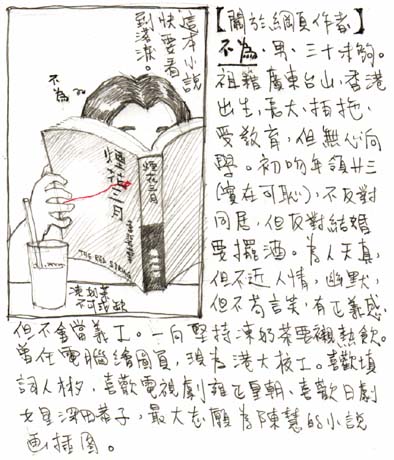 這本小說
快要看
到落淚。
不為
煙花三月
煙花三月
李碧華
THE RED STRING
凍奶茶
不可或缺
【關於網頁作者】
不為,男,三十未夠。
祖籍廣東台山,香港
出生,長大,拍拖,
受教育,但無心向
學。初吻年領廿三
(實在可恥),不反對
同居,但反對結婚
要擺酒。為人天真,
但不近人情,幽默,
但不苟言笑,有正義感,
但不會當義工。一向堅持凍奶茶要襯熱飲。
曾任電腦繪圖員,現為港大校工。喜歡填
詞人林夕,喜歡電視劇雍正皇朝,喜歡日劇
女星深田恭子,最大志願為陳慧的小說
畫插圖。